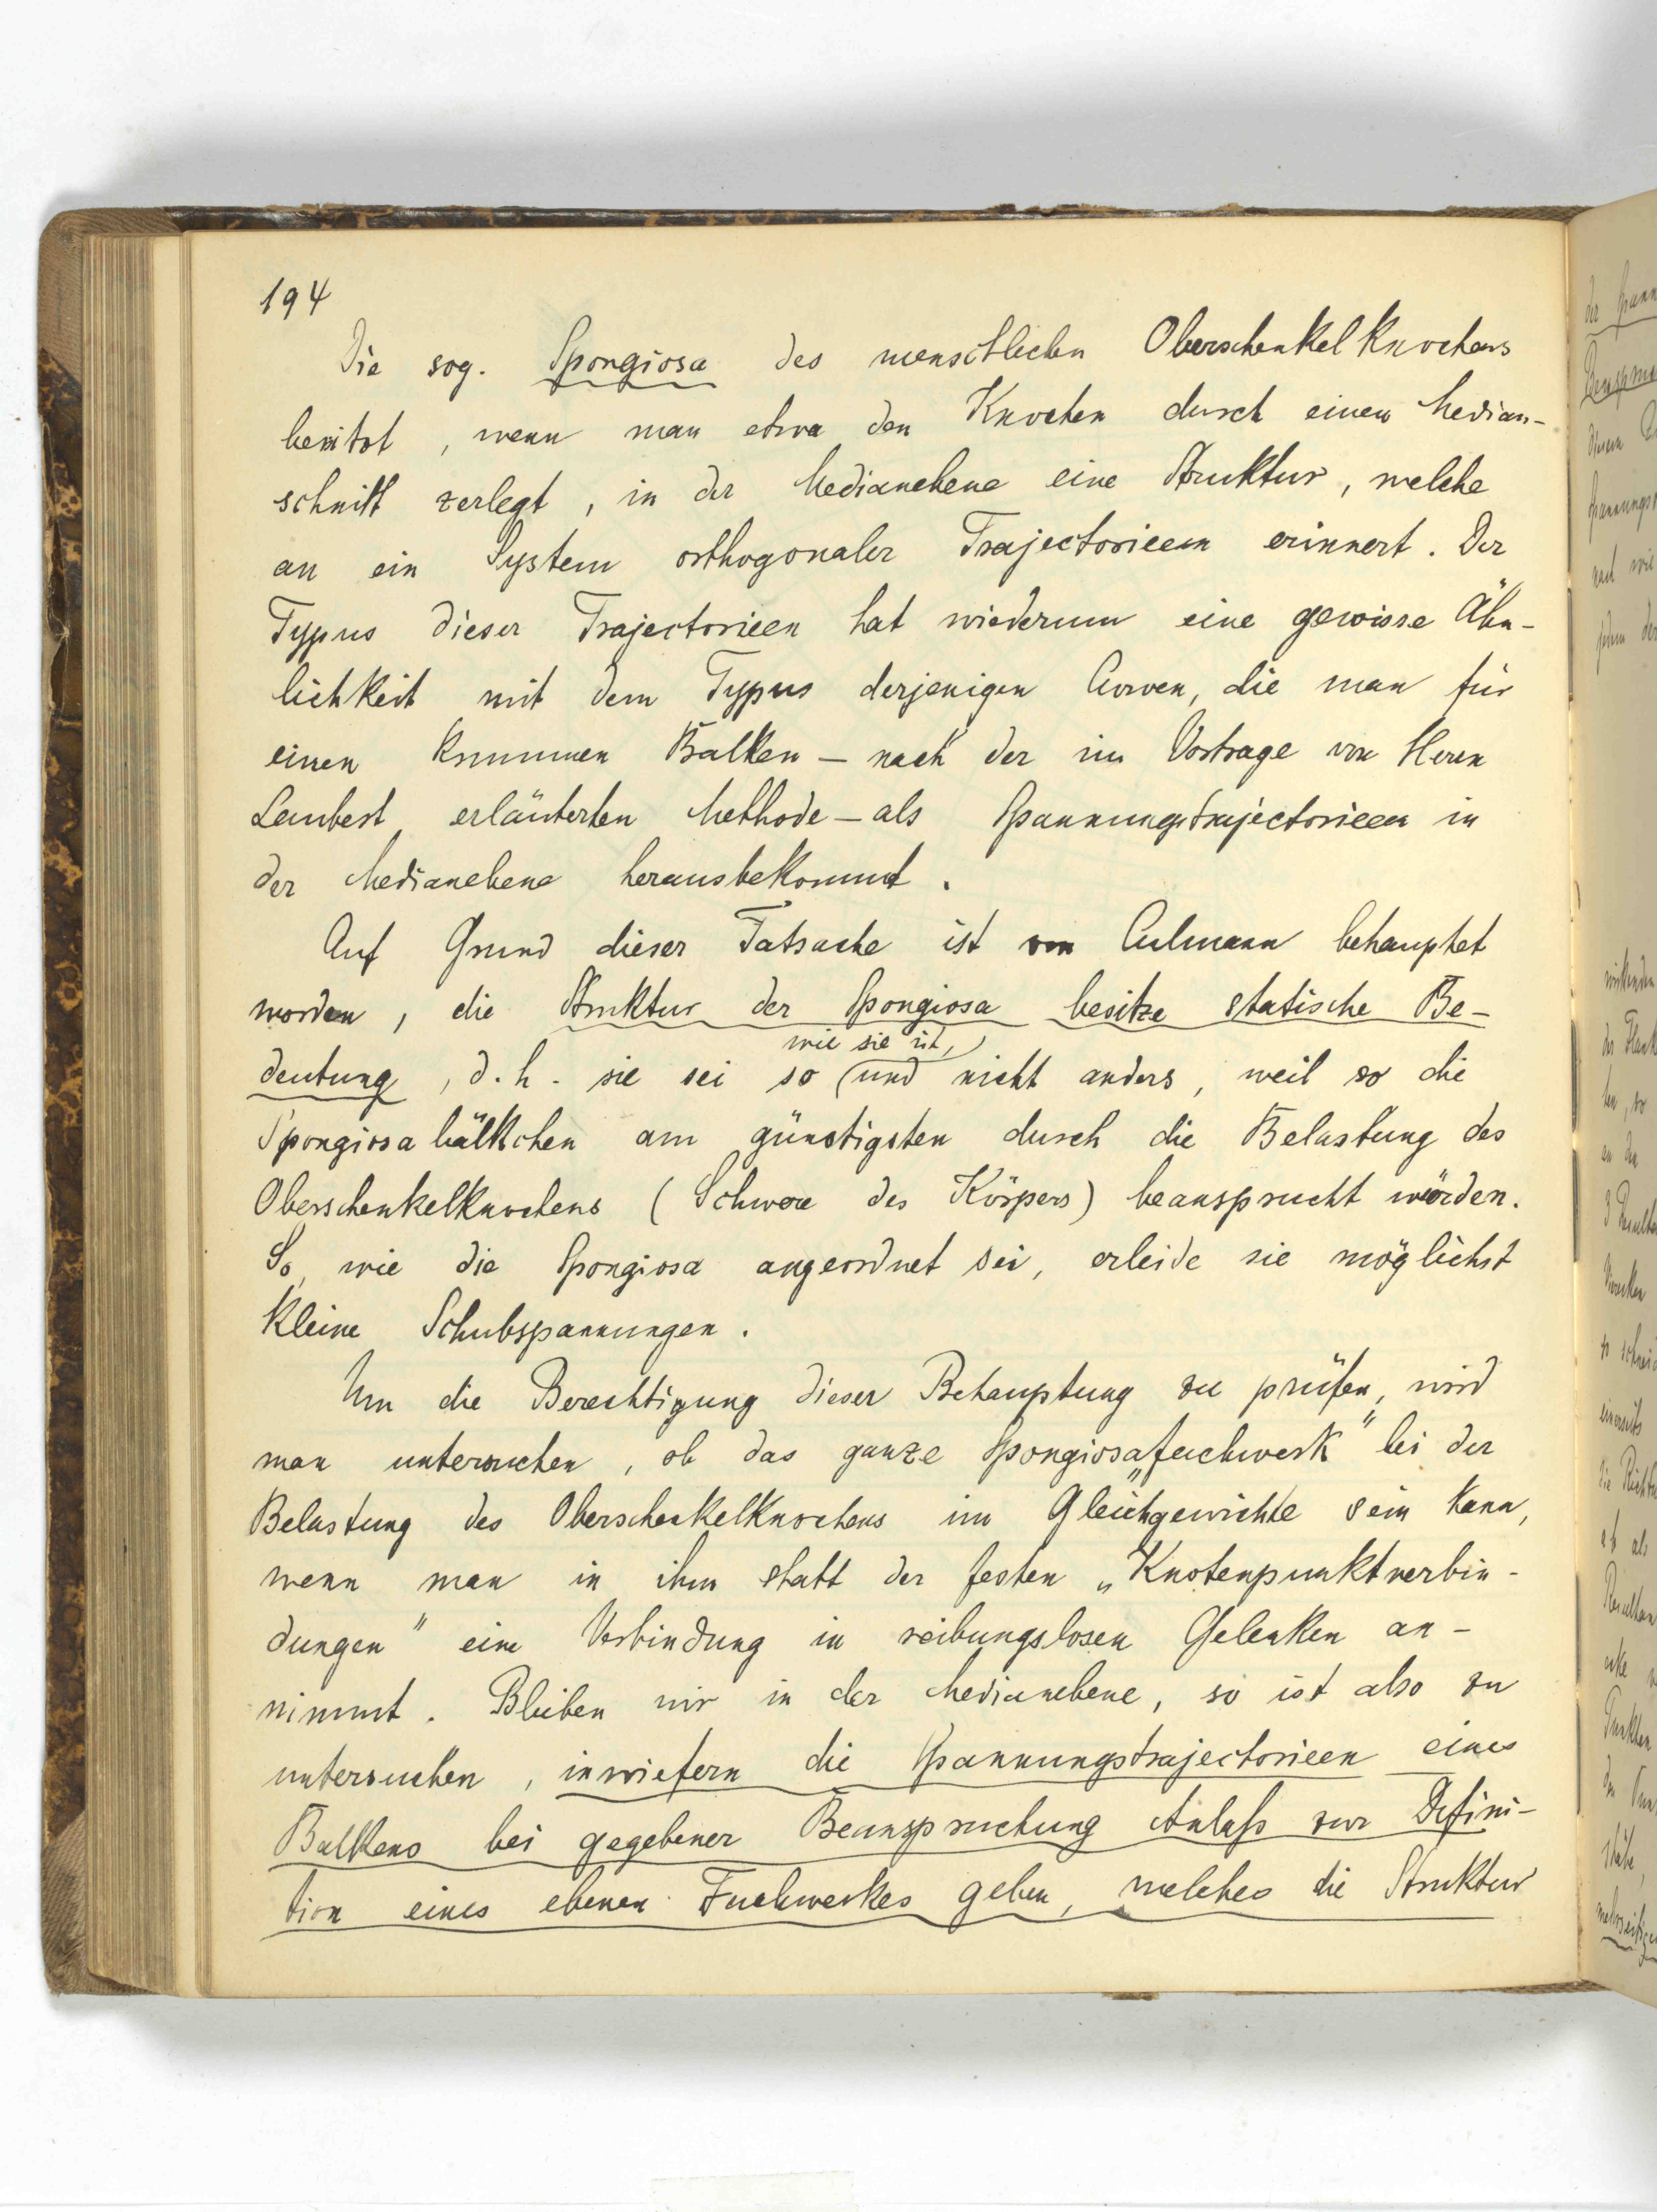 194
Die sog. Spongiosa des menschlichen Oberschenkelknochens
besitzt, wenn man etwa den Knochen durch einen Median-
schnitt zerlegt, in der Medianebene eine Struktur, welche
an ein System orthogonaler Trajectorieen erinnert. Der
Typus dieser Trajectorieen hat wiederum eine gewisse Ähn-
lichkeit mit dem Typus derjenigen Curven, die man für
einen krummen Balken – nach der im Vortrage von Herrn
erläuterten Methode – als Spannungstrajectorieen in
der Medianebene herausbekommt.
Auf Grund dieser Tatsache ist von Culmann behauptet
worden, die Struktur der Spongiosa besitze statische Be-
deutung, d. h. sie sei so (wie sie ist,) und nicht anders, weil so die
Spongiosabälkchen am günstigsten durch die Belastung des
Oberschenkelknochens (Schwere des Körpers) beansprucht würden.
So, wie die Spongiosa angeordnet sei, erleide sie möglichst
kleine Schubspannungen.
Um die Berechtigung dieser Behauptung zu prüfen, wird
man untersuchen, ob das ganze Spongiosa„fachwerk“ bei der
Belastung des Oberschenkelknochens im Gleichgewichte sein kann,
wenn man in ihm statt der festen „Knotenpunktverbin-
dungen“ eine Verbindung in reibungslosen Gelenken an-
nimmt. Bleiben wir in der Medianebene, so ist also zu
untersuchen, inwiefern die Spannungstrajectorieen eines
Balkens bei gegebener Beanspruchung Anlaß zur Defini-
tion eines ebenen Fachwerkes geben, welches die Struktur